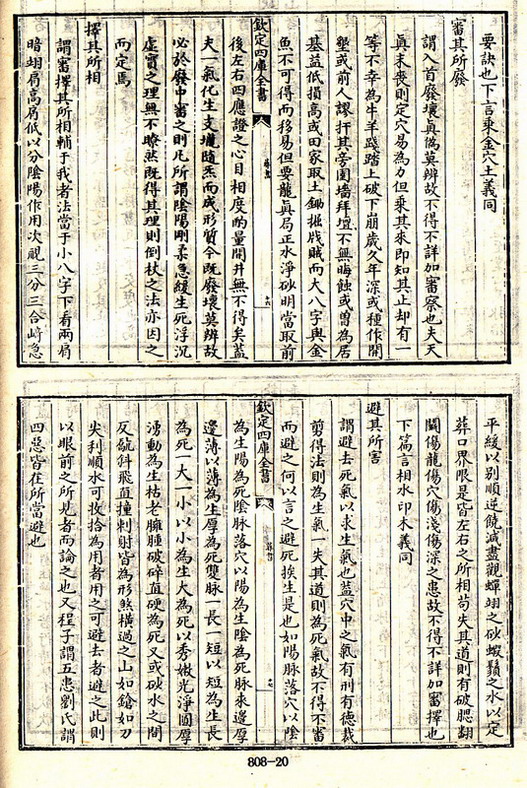 要訣也下言乗金穴土義同
審其所廢
謂入首廢壞真偽莫辨故不得不詳加審察也夫天
真未喪則定穴易為力但乗其來即知其止却有一
等不幸為牛羊踐踏上破下崩歲久年深或種作開
墾或前人謬扦其旁圍墻拜壇不無晦蝕或曽為居
基益低損高或田家取土鋤掘戕賊而大八字與金
魚不可得而移易但要龍真局正水淨砂明當取前
欽定四庫全書
葬書
十六
後左右四應證之心目相度酌量開井無不得矣蓋
夫一氣化生支壠隨氣而成形質今既廢壞莫辨故
必於廢中審之則凡所謂陰陽剛柔急緩生死浮沉
虚實之理無不瞭然既得其理則倒杖之法亦因之
而定焉
擇其所相
謂審擇其所相輔于我者法當于小八字下看兩肩
暗翊肩高肩低以分陰陽作用次視三分三合﨑急
平緩以别順逆饒減盡觀蟬翊之砂蝦鬚之水以定
葬口界限是皆左右之所相苟失其道則有破腮翻
鬬傷龍傷穴傷淺傷深之患故不得不詳加審擇也
下篇言相水印木義同
避其所害
謂避去死氣以求生氣也蓋穴中之氣有刑有徳裁
剪得法則為生氣一失其道則為死氣故不得不審
而避之何以言之避死挨生是也如陽脉落穴以陰
欽定四庫全書
葬書
十七
為生陽為死陰脉落穴以陽為生陰為死脉來邊厚
邊薄以薄為生厚為死雙脉一長一短以短為生長
為死一大一小以小為生大為死以秀嫩光淨圓厚
湧動為生枯老臃腫破碎直硬為死又或砂水之間
反㼌斜飛直撞刺射皆為形煞横過之山如鎗如刀
尖利順水可收拾為用者用之可避去者避之此則
以眼前之所見者而論之也又程子謂五患劉氏謂
四惡皆在所當避也
808-20